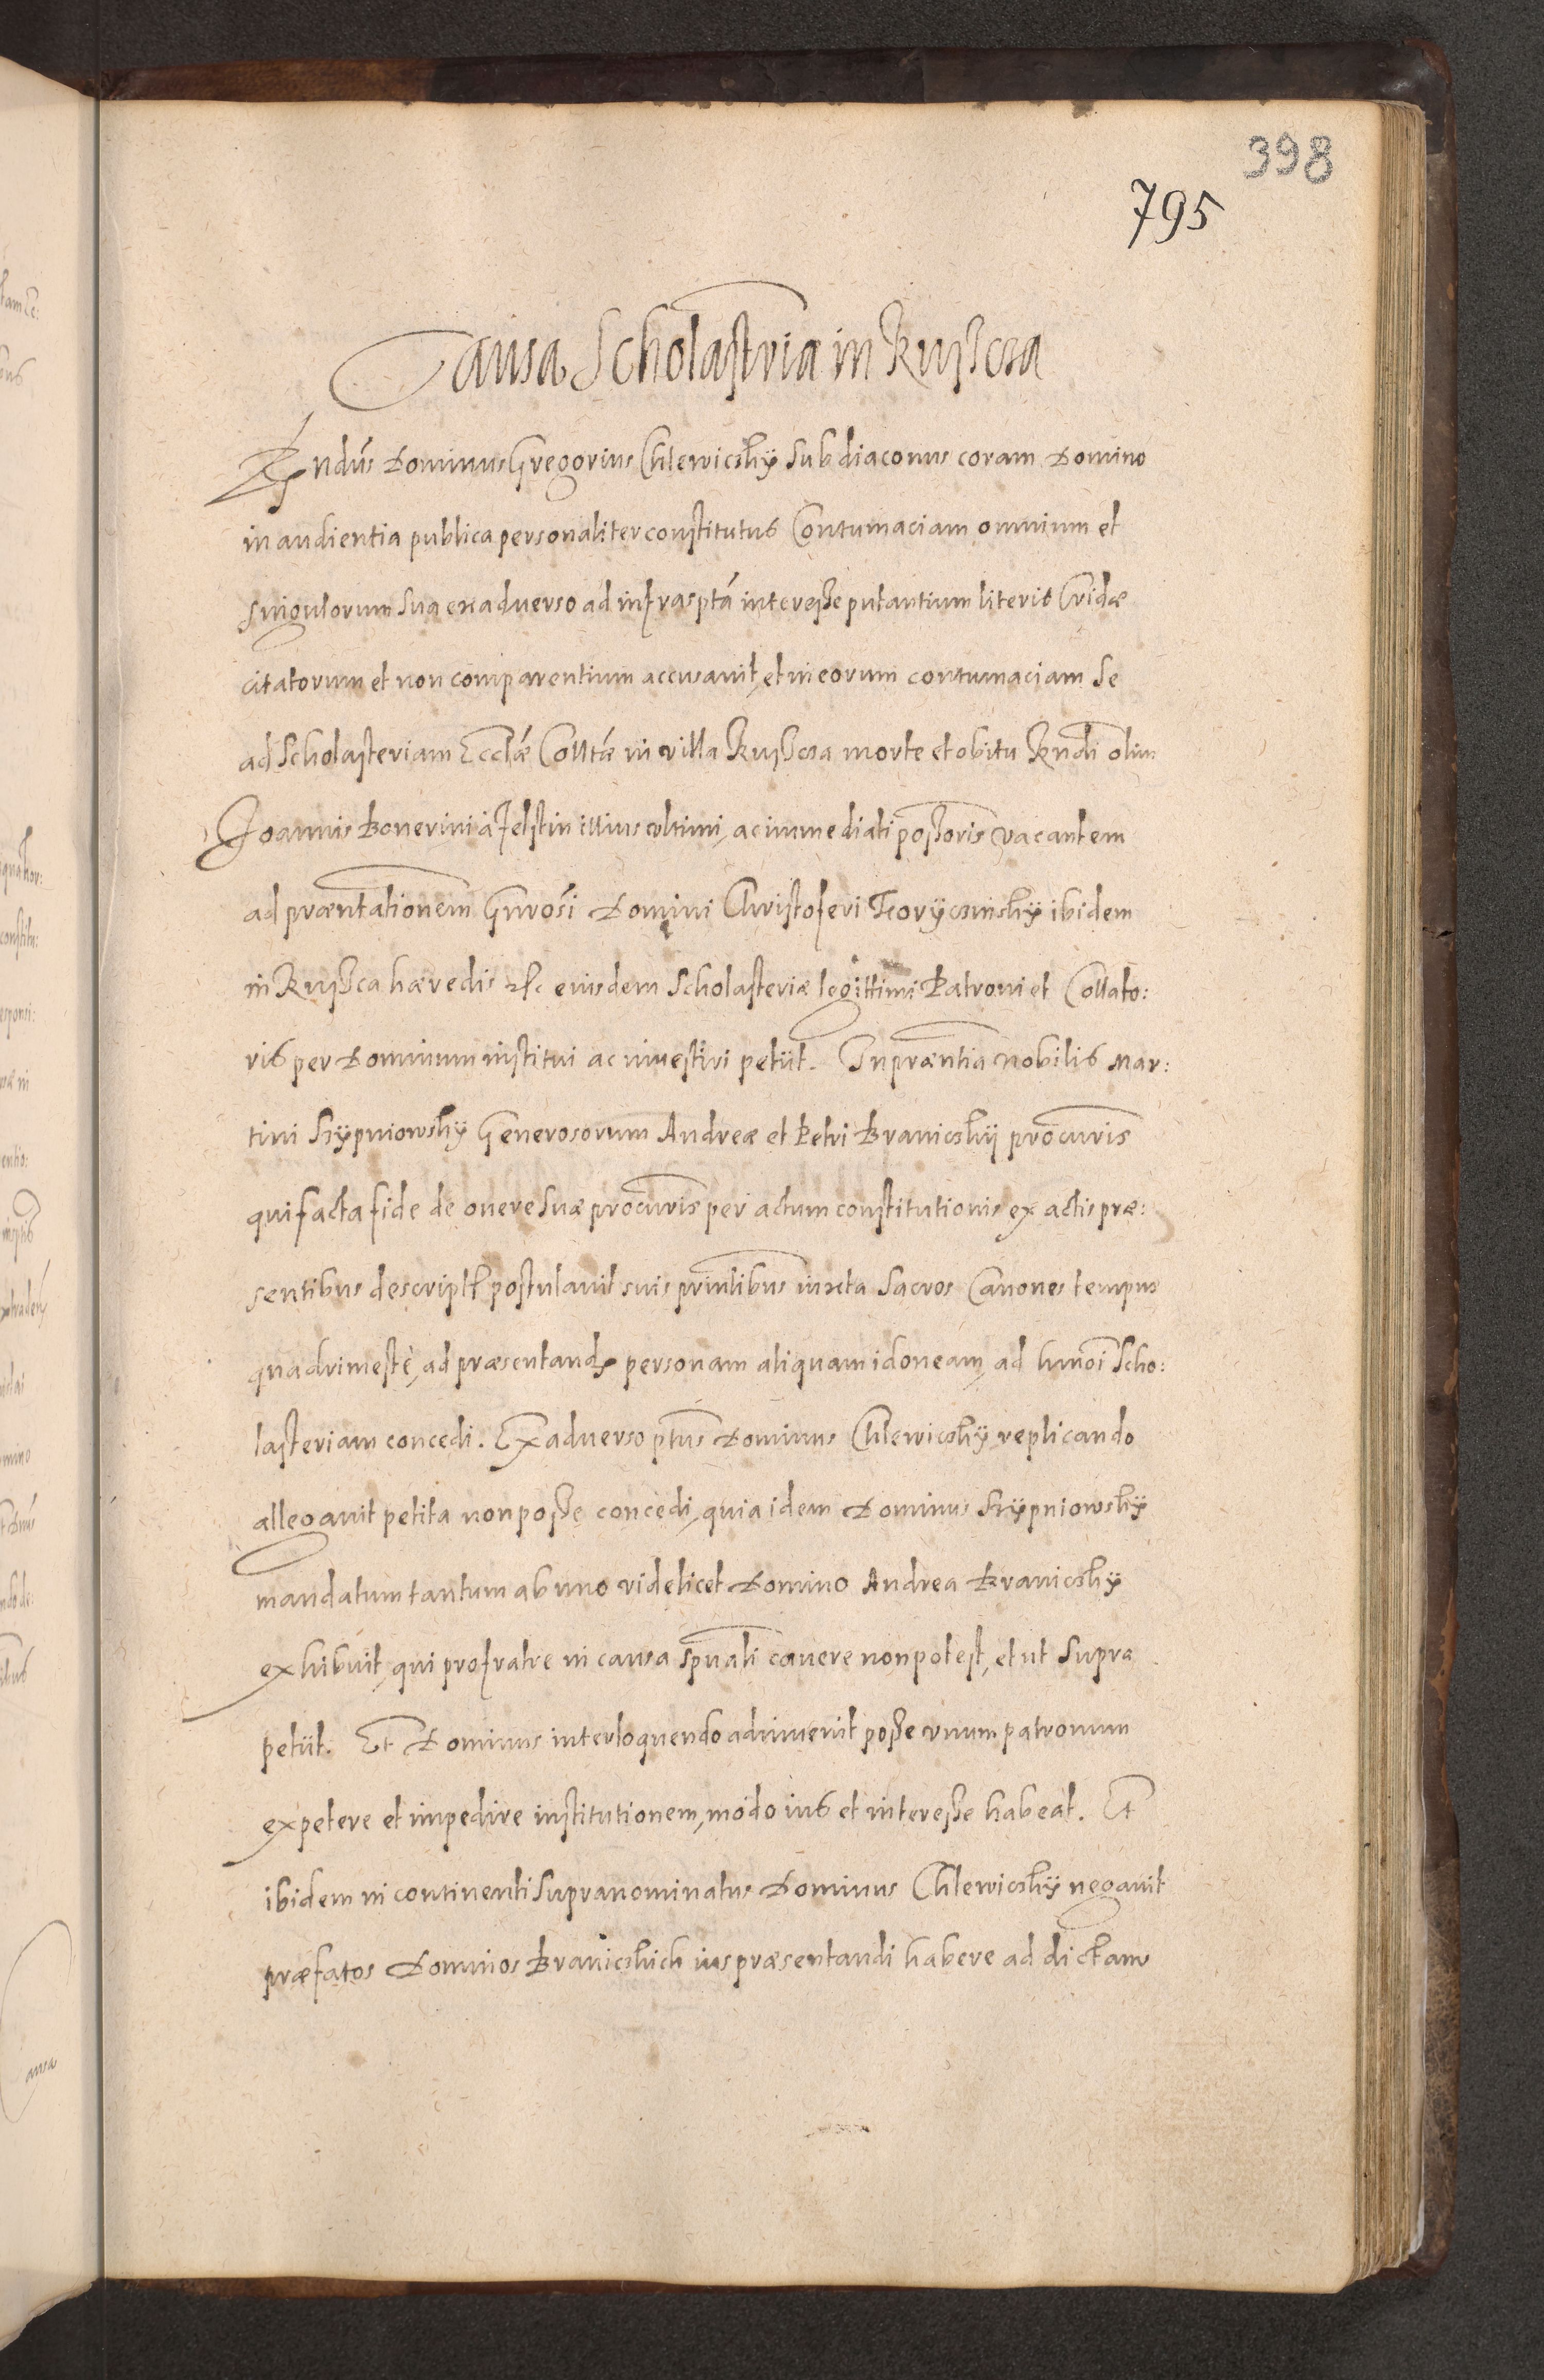 398
795
Causa Scholastria in Ruisscza
Rndús Dominus Gregorius Chlewiczky Subdiaconus coram Domino
in audientia publica personaliter constitutus Contumaciam omnium et
singulorum sua ex aduerso ad infrasptã interesse putantium literis Cridæ
citatorum et non comparentium accusauit, et in eorum contumaciam se
ad Scholasteriam Eccłæ Colltæ in villa Ruisscza morte et obitu Rndi olim
Joannis Bonerini à Felstin illius vltimi, ac immediati possoris vacantem
ad præntationem Gnrosi Domini Christoferi
ibidem
in Ruissca hæredis etc eiusdem Scholasteriæ legittimi Patroni et Collato:
ris per Dominum institui ac inuestiri petiit. In præntia nobilis Mar:
tini Krÿpniowskÿ Generosorum Andreæ et Petri Braniczkÿ procuris
qui facta fide de onere suæ procuris per actum constitutionis ex actis præ:
sentibus descript postulauit suis prinlibus iuxta Sacros Canones tempus
quadrimestè, ad præsentand personam aliquam idoneam, ad hmoi Scho:
lasteriam concedi. Ex aduerso ptus Dominus Chlewiczkÿ replicando
allegauit petita non posse concedi, quia idem Dominus Krÿpniowskÿ
mandatum tantum ab uno videlicet Domino Andrea Braniczkÿ
exhibuit, qui pro fratre in causa spuali cauere non potest, et ut supra
petiit. Et Dominus interloquendo adinuenit posse vnum patronum
expetere et impedire institutionem, modo ius et interesse habeat. Et
ibidem in continenti Supranominatus Dominus Chlewiczkÿ negauit
præfatos Dominos Braniczkich ius præsentandi habere ad dictam